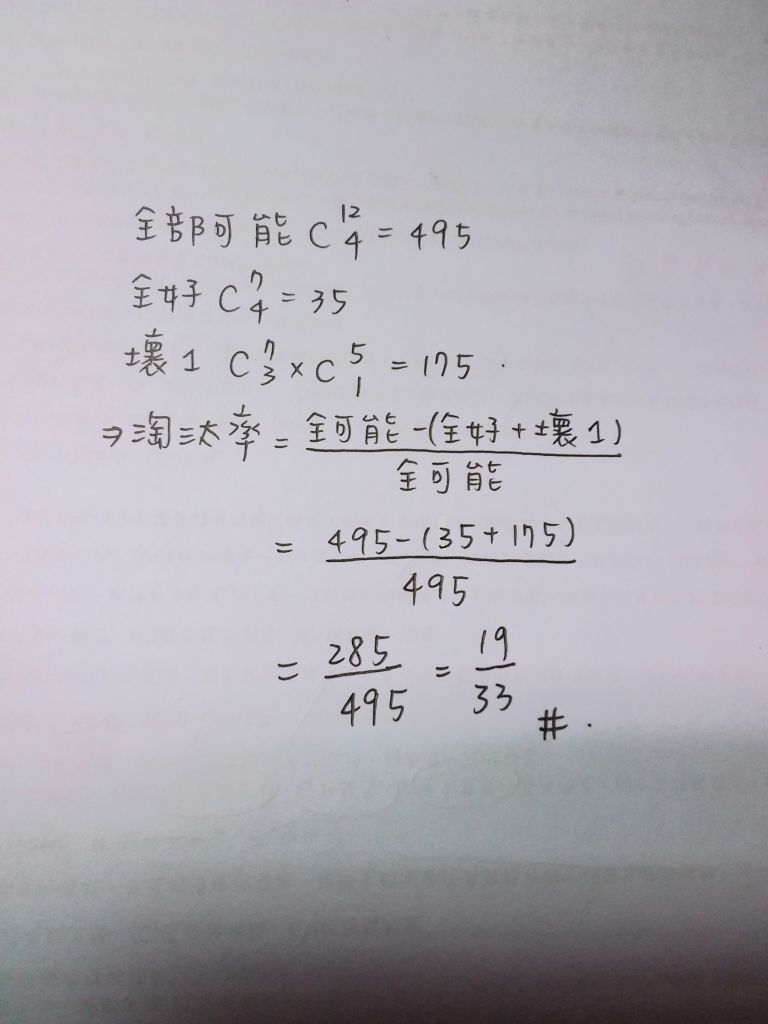 全部可能 C¹²₄ = 495
全好 C⁷₄ = 35
壞1 C⁷₃ × C⁵₁ = 175.
⇒淘汰率 = 全可能-(全好+壞1)
全可能
= 495-(35+175)
495
= 285/495 = 19/33 #.